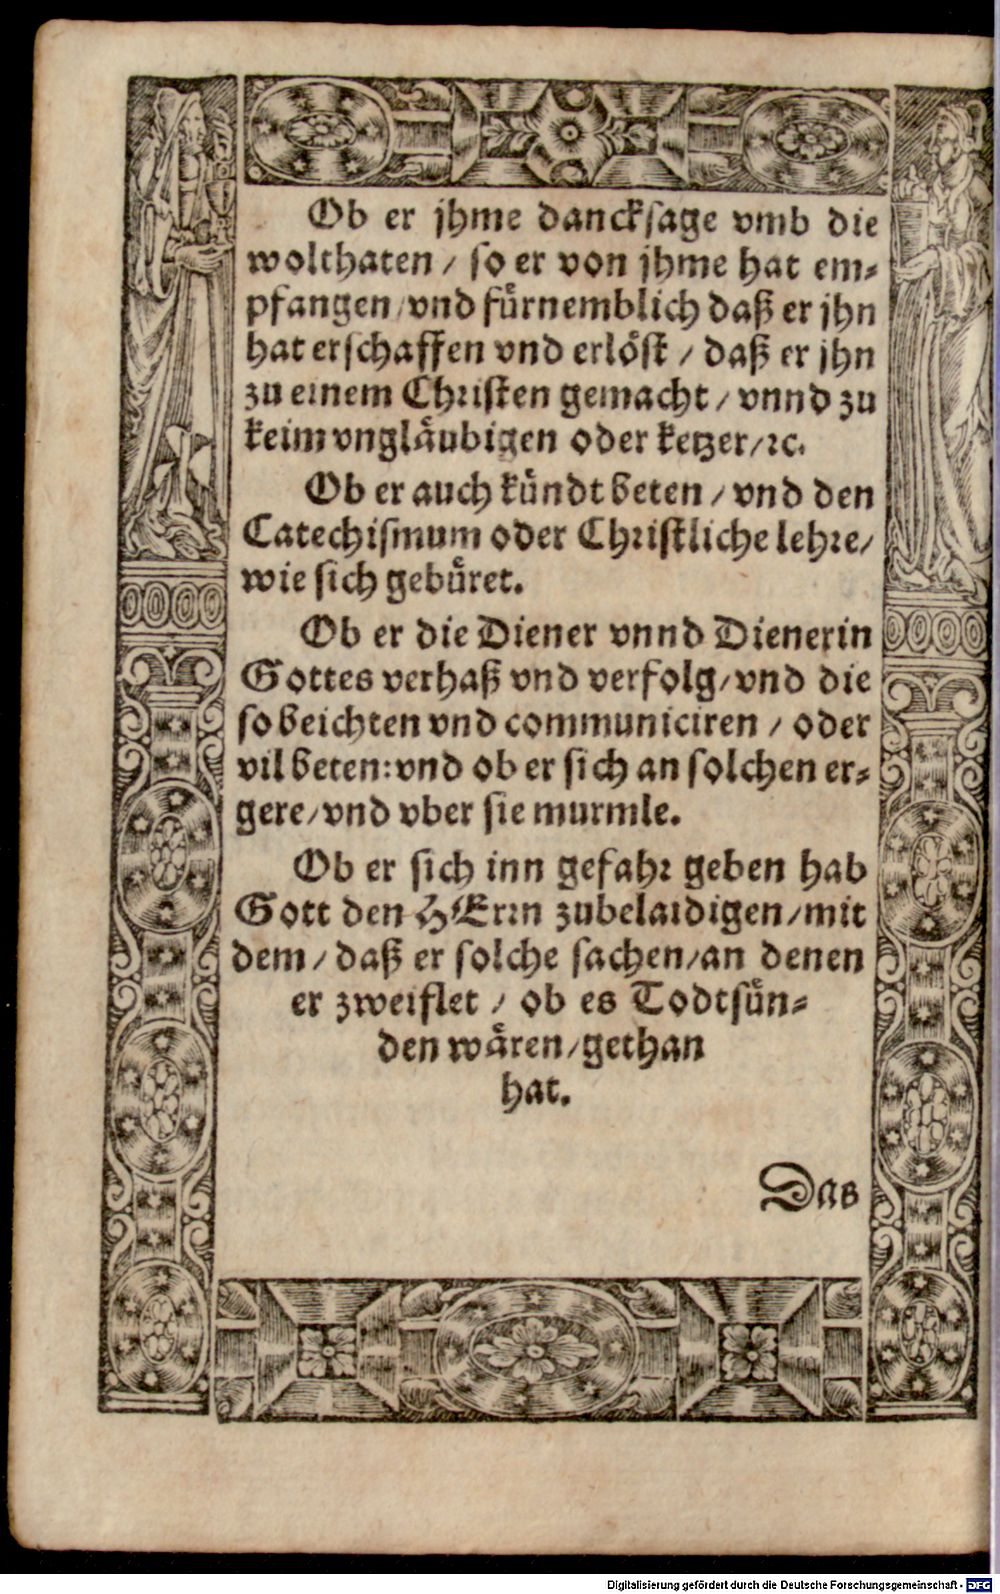 Ob er jhme danckſage vmb die
wolthaten / ſo er von jhme hat em⸗
pfangen / vnd fuͤrnemblich daß er jhn
hat erſchaffen vnd erloͤſt / daß er jhn
zu einem Chriſten gemacht / vnnd zu
keim vnglaͤubigen oder ketzer / ꝛc.
Ob er auch kuͤndt beten / vnd den
Catechiſmum oder Chriſtliche lehre /
wie ſich gebuͤret.
Ob er die Diener vnnd Dienerin
Gottes verhaß vnd verfolg / vnd die
ſo beichten vnd communiciren / oder
vil beten: vnd ob er ſich an ſolchen er⸗
gere / vnd vber ſie murmle.
Ob er ſich inn gefahr geben hab
Gott den HErrn zubelaidigen / mit
dem / daß er ſolche ſachen / an denen
er zweiflet / ob es Todtſuͤn⸗
den waͤren / gethan
hat.
Das
Digitalisierung gefördert durch die Deutsche Forschungsgemeinschaft - DFG